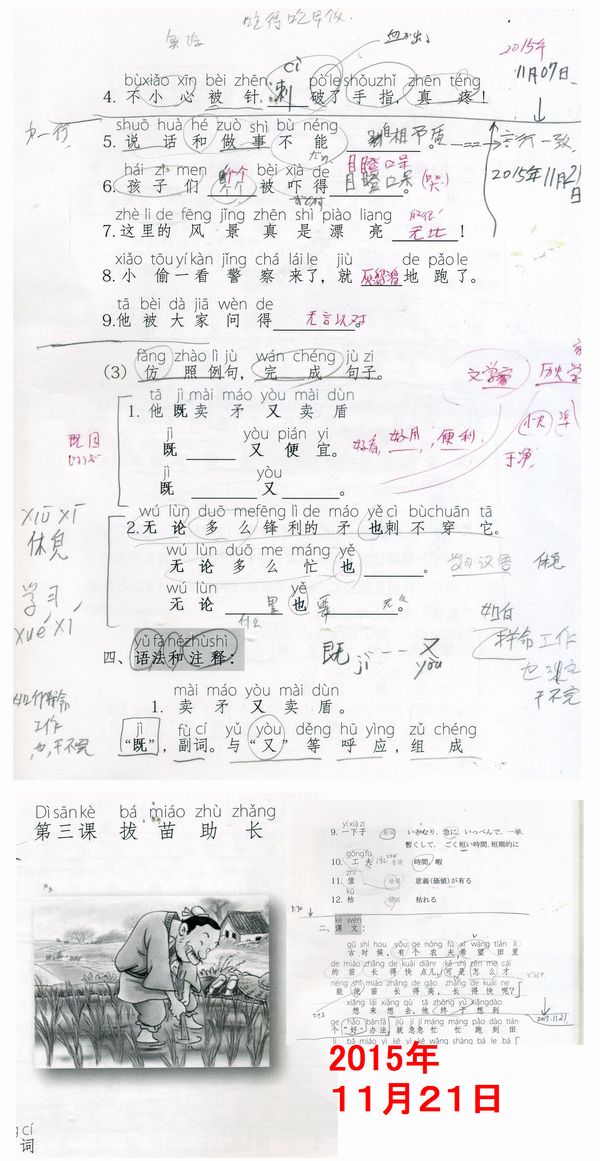 吃得吃早饭.
实验
血が出る
2015年
11月07日
cì
bùxiǎo xīn bèi zhēn pò le shǒuzhǐ zhēn téng
4. 不小心被针刺破了手指，真疼！
shuō huà hé zuò shì bù néng
5. 说话和做事不能自相矛盾。
言行一致
2015年11月21日
hái zi men bèi xià de
目瞪口呆
6. 孩子们个个被吓得目瞪口呆。
zhè li de fēng jǐng zhēn shì piào liang
7.这里的风景真是漂亮无比！
xiǎo tōu yí kàn jǐng chá lái le jiù de pǎo le
8.小偷一看警察来了，就灰溜溜地跑了。
tā bèi dà jiā wèn de
9.他被大家问得无言以对。
fǎng zhào lì jù wán chéng jù zi
(3) 仿照例句，完成句子。
文学家 历史学
tā jì mài máo yòu mài dùn
1. 他既卖矛又卖盾
jì yòu pián yi
既 又便宜。
好看, 好用, 便利,
干净,
jì yòu
既 又 。
xiū xī
休息
学习
xué xí
wú lùn duō me fēng lì de máo yě cì bù chuān tā
2.无论多么锋利的矛也刺不穿它。
wú lùn duō me máng yě
无论多么忙也 。
学习汉语 休息
wú lùn yě
无论 累 也要 。
什么
yǔ fǎ hé zhù shì
四、语法和注释：
既 --- 又
jì yòu
拼命工作
也
干不完
mài máo yòu mài dùn
1. 卖矛又卖盾。
jì fù cí yǔ yòu děng hū yìng zǔ chéng
“既”，副词。与“又”等呼应，组成
工作
也干不完
Dì sān kè bá miáo zhù zhǎng
第三课 拔苗助长
yí xià zi
9. 一下子 いきなり、急に、いっぺんで、一挙、
暫くして、ごく短い時間、短期的に
gōng fu
10. 工夫 名词 時間、暇
zhí
11. 值 动词 意義(価値)が有る
kū
12. 枯 动词 枯れる
kè wén
二、课文：
gǔ shí hou yǒu ge nóng fū xī wàng tián lǐ
古时候，有个农夫希望田里
de miáo zhǎng de kuài diǎnr kě shì zěn me cái
的苗长得快点儿，可是怎么才
néng shǐ miáo zhǎng de gāo zhǎng de kuài ne
能使苗长得高，长得快呢？
xiǎng lái xiǎng qù tā zhōng yú xiǎng dào
想来想去，他终于想到
2015.11.21
ge hǎo bàn fǎ jiù jí jí máng máng pǎo dào tián
个“好”办法，就急急忙忙跑到田
lǐ bǎ miáo yì kē yì kē wǎng shàng bá le bá
2015年
11月21日
cí
词